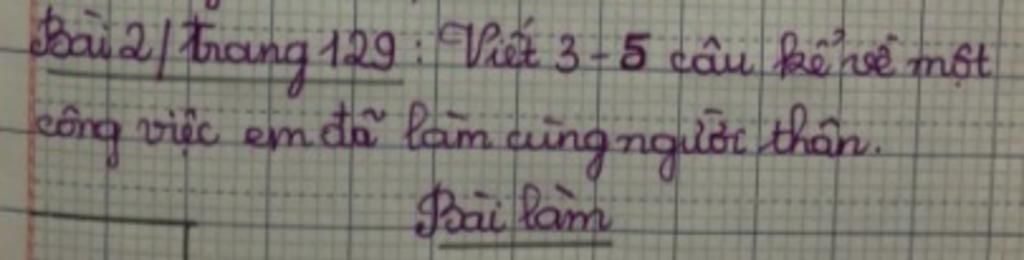 Bài 2/ trang 129 : Viết 3 - 5 câu kể về một
công việc em đã làm cùng người thân.
Bài làm